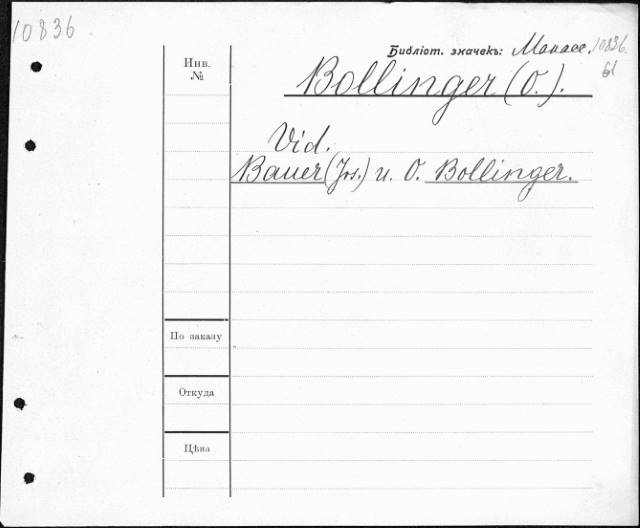 10836
Библіот. значекъ: Манасе. 10836.
61
Инв.
№
Bollinger (O.).
Vid.
Bauer (Jos.) u. O. Bollinger.
По заказу
Откуда
Цѣна